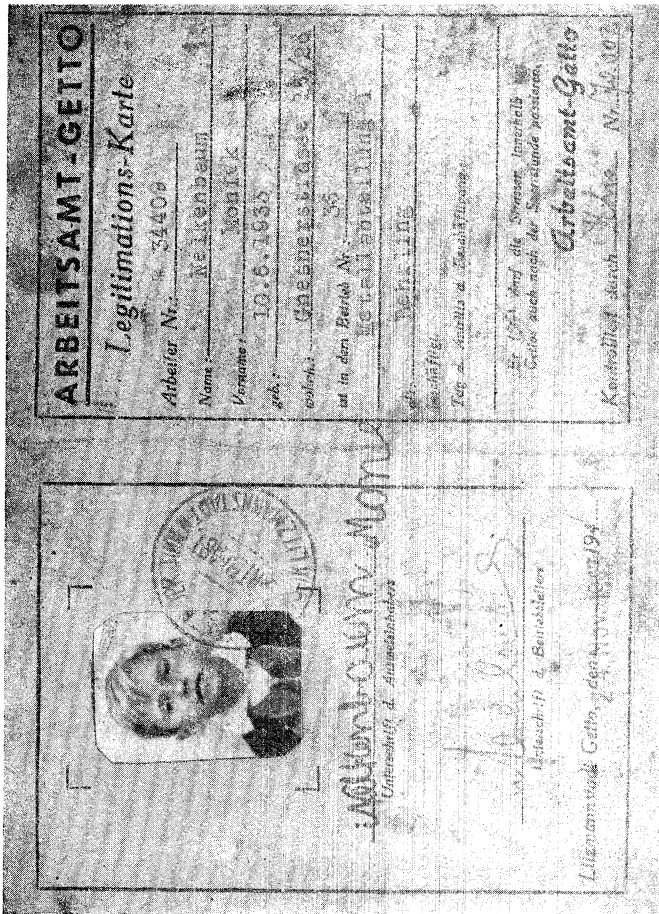 ARBEITSAMT-GETTO
Legitimations-Karte
Arbeiter Nr.: 34409
Name: Nelkenbaum
Vorname: Moniek
geb.: 10.6.1933
wohnh.: Gnesnerstrasse
ist in dem Betrieb Nr.: 36
Metallabteilung 1
als: Lehrling
beschäftigt.
Tag d. Antritts d. Beschäftigung:
Er darf die Strassen innerhalb des
Gettos auch nach der Sperrstunde passieren.
Arbeitsamt-Getto
Kontrolliert durch
Nelkenbaum Moni
Unterschrift d. Ausweisinhabers
Unterschrift d. Betriebsleiters
Litzmannstadt Getto, den 194